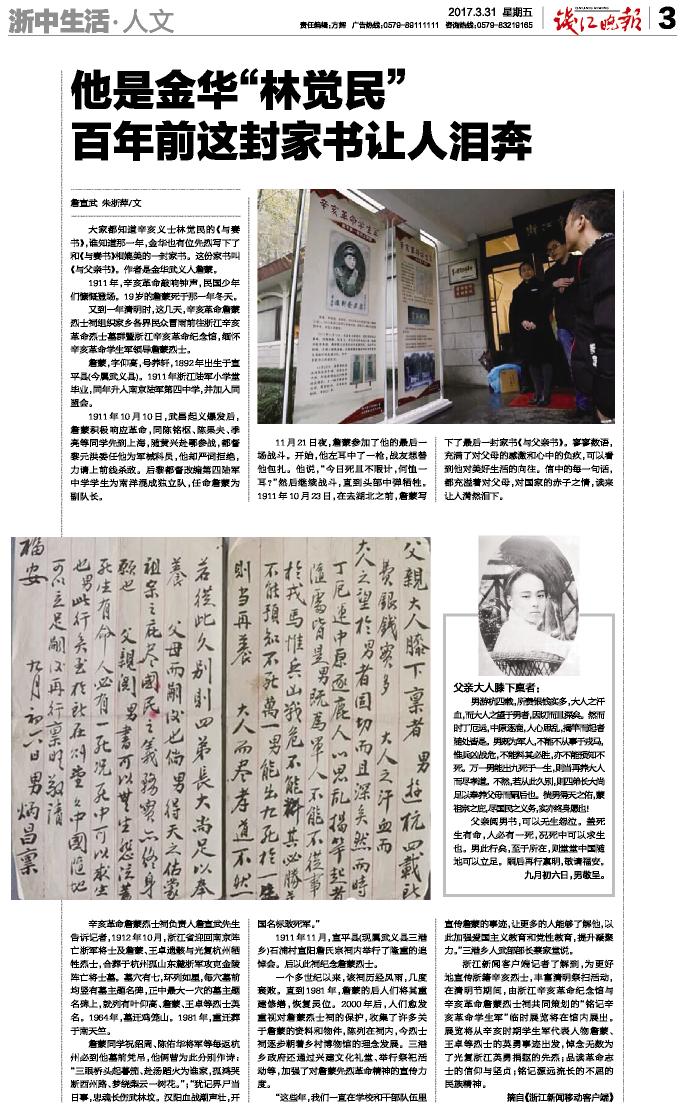 浙中生活·人文
2017.3.31 星期五
责任编辑:方辉 广告热线:0579-89111111 咨询热线:0579-83219165
钱江晚报
3
他是金华“林觉民”
百年前这封家书让人泪奔
詹宣武 朱浙萍/文
大家都知道辛亥义士林觉民的《与妻
书》,谁知道那一年,金华也有位先烈写下了
和《与妻书》相媲美的一封家书。这份家书叫
《与父亲书》。作者是金华武义人詹蒙。
1911年,辛亥革命敲响钟声,民国少年
们慷慨登场。19岁的詹蒙死于那一年冬天。
又到一年清明时,这几天,辛亥革命詹蒙
烈士祠组织家乡各界民众冒雨前往浙江辛亥
革命烈士墓群暨浙江辛亥革命纪念馆,缅怀
辛亥革命学生军领导詹蒙烈士。
詹蒙,字仰高,号养轩,1892年出生于宣
平县(今属武义县)。1911年浙江陆军小学堂
毕业,同年升入南京陆军第四中学,并加入同
盟会。
1911年10月10日,武昌起义爆发后,
詹蒙积极响应革命,同陈铭枢、陈果夫、季
亮等同学先到上海,随黄兴赴鄂参战,都督
黎元洪委任他为军械科员,他却严词拒绝,
力请上前线杀敌。后黎都督改编第四陆军
中学学生为南洋混成独立队,任命詹蒙为
副队长。
11月21日夜,詹蒙参加了他的最后一
场战斗。开始,他左耳中了一枪,战友想替
他包扎。他说,“今日死且不暇计,何恤一
耳?”然后继续战斗,直到头部中弹牺牲。
1911年10月23日,在去湖北之前,詹蒙写
下了最后一封家书《与父亲书》。寥寥数语,
充满了对父母的感激和心中的负疚,可以看
到他对美好生活的向往。信中的每一句话,
都充溢着对父母,对国家的赤子之情,读来
让人潸然泪下。
辛亥革命学生军
父親大人膝下禀者 男遊杭四載所
費銀錢實多 大人之汗血而
大人之望於男者固切而且深矣然而時
丁厄運中原逐鹿人心思乱揭竿起者
隨處皆是男既爲軍人不能不從事
於戎馬惟兵凶戰危不能料其必勝亦
不能預知不死萬一男能出九死於一生
則当再養 大人而尽孝道不然
若從此久别則四弟長大尚足以奉
養 父母而嗣後也倘男得天之佑蒙
祖宗之庇尽國民之義務實亦終身
願也 父親閲男書可以無生怨泣蓋
死生有命人必有一死况死中可以求生
也男此行矣至於所在则堂々中國隨地
可以立足嗣后再行禀明敬請
福安 九月初六日男炳昌禀
父亲大人膝下禀者:
男游杭四载,所费银钱实多,大人之汗
血,而大人之望于男者,固切而且深矣。然而
时丁厄运,中原逐鹿,人心思乱,揭竿而起者
随处皆是。男既为军人,不能不从事于戎马,
惟兵凶战危,不能料其必胜,亦不能预知不
死。万一男能出九死于一生,则当再养大人
而尽孝道。不然,若从此久别,则四弟长大尚
足以奉养父母而嗣后也。倘男得天之佑,蒙
祖宗之庇,尽国民之义务,实亦终身愿也!
父亲阅男书,可以无生怨泣。盖死
生有命,人必有一死,况死中可以求生
也。男此行矣,至于所在,则堂堂中国随
地可以立足。嗣后再行禀明,敬请福安。
九月初六日,男敬呈。
辛亥革命詹蒙烈士祠负责人詹宣武先生
告诉记者,1912年10月,浙江省迎回南京阵
亡浙军将士及詹蒙、王卓遗骸与光复杭州牺
牲烈士,合葬于杭州孤山东麓浙军攻克金陵
阵亡将士墓。墓穴有七,环列如星,每穴墓前
均竖有墓主题名碑,正中最大一穴的墓主题
名碑上,就列有叶仰高、詹蒙、王卓等烈士英
名。1964年,墓迁鸡笼山。1981年,重迁葬
于南天竺。
詹蒙同学祝绍周、陈佑华将军等每返杭
州必到他墓前凭吊,他俩曾为此分别作诗:
“三眼桥头起暮流,赴汤蹈火为谁家,孤鸿哭
断西州路、梦绕梨云一树花。”;“犹记弄尸当
日事,忠魂长伤武林坟。汉阳血战潮声壮,开
国名标敢死军。”
1911年11月,宣平县(现属武义县三港
乡)石浦村宣阳詹氏宗祠内举行了隆重的追
悼会。后以此祠纪念詹蒙烈士。
一个多世纪以来,该祠历经风雨,几度
衰败。直到1981年,詹蒙的后人们将其重
建修缮,恢复灵位。2000年后,人们愈发
重视对詹蒙烈士祠的保护,收集了许多关
于詹蒙的资料和物件,陈列在祠内,今烈士
祠逐步朝着乡村博物馆的理念发展。三港
乡政府还通过兴建文化礼堂、举行祭祀活
动等,加强了对詹蒙先烈革命精神的宣传力
度。
“这些年,我们一直在学校和干部队伍里
宣传詹蒙的事迹,让更多的人能够了解他,以
此加强爱国主义教育和党性教育,提升凝聚
力。”三港乡人武部部长蔡家堂说。
浙江新闻客户端记者了解到,为更好
地宣传浙籍辛亥烈士,丰富清明祭扫活动,
在清明节期间,由浙江辛亥革命纪念馆与
辛亥革命詹蒙烈士祠共同策划的“铭记辛
亥革命学生军”临时展览将在馆内展出。
展览将从辛亥时期学生军代表人物詹蒙、
王卓等烈士的英勇事迹出发,悼念无数为
了光复浙江英勇捐躯的先烈;品读革命志
士的信仰与坚贞;铭记源远流长的不屈的
民族精神。
摘自《浙江新闻移动客户端》